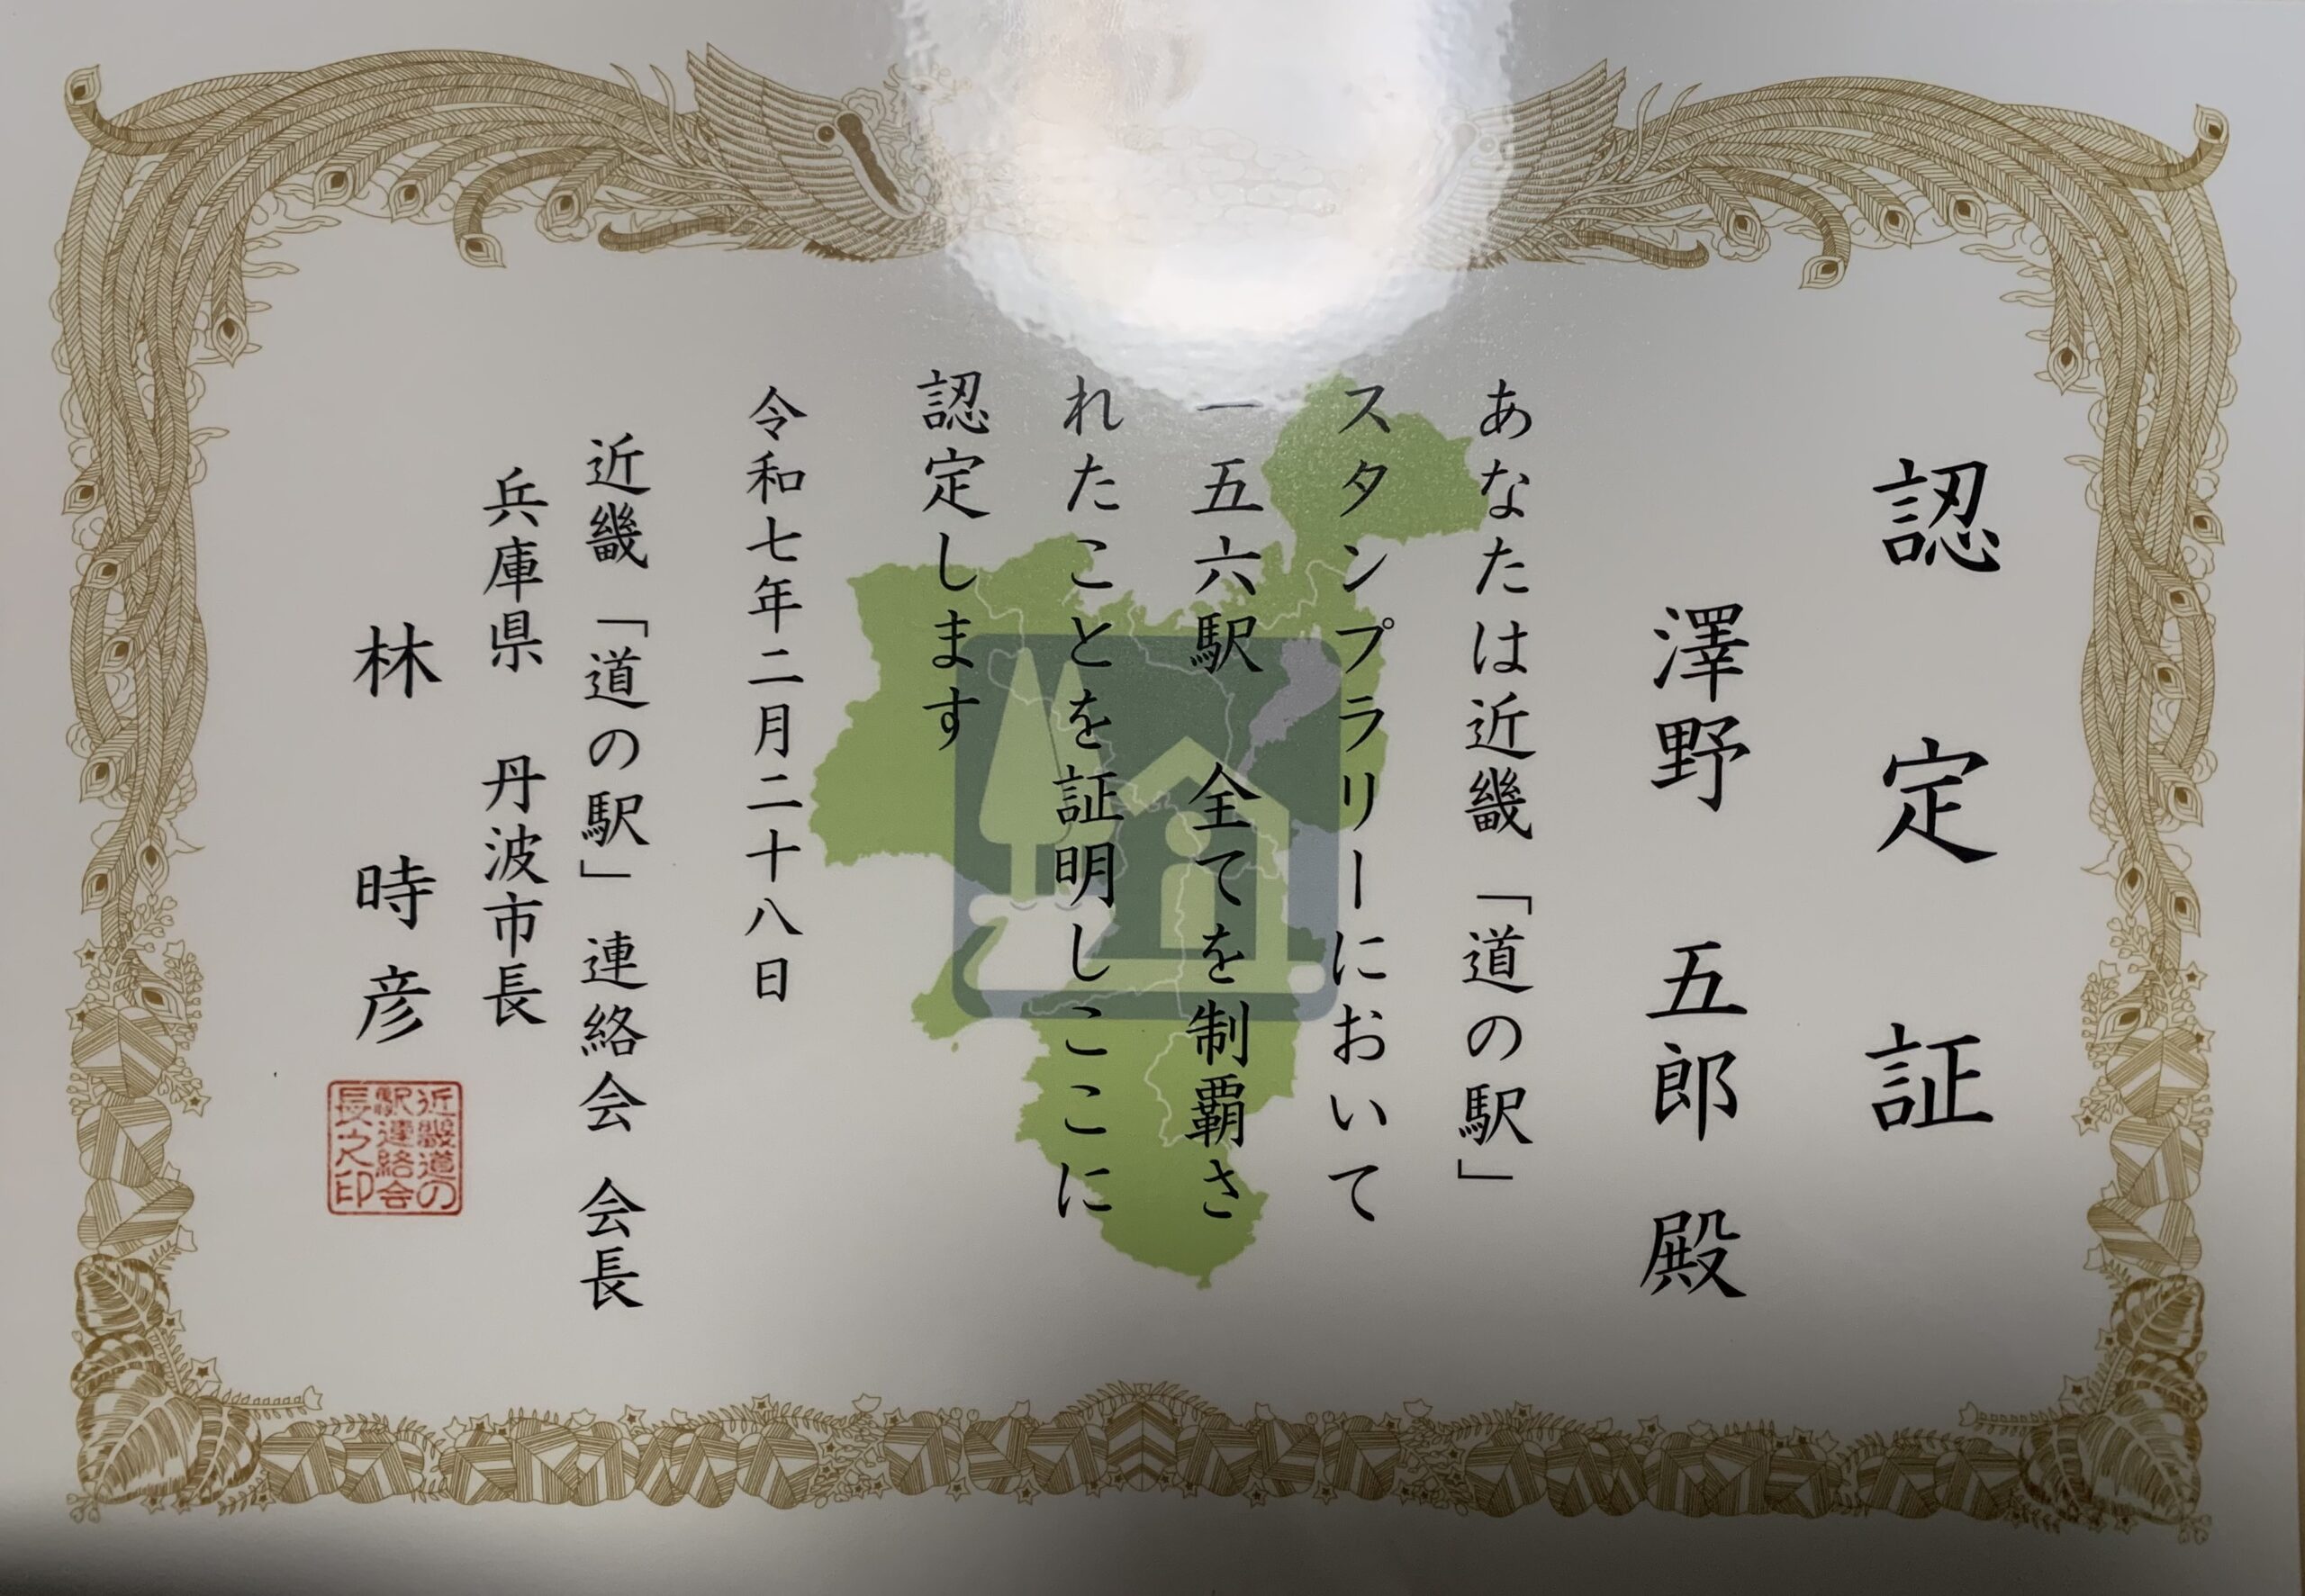 認定証
澤野 五郎 殿
あなたは近畿「道の駅」
スタンプラリーにおいて
一五六駅 全てを制覇さ
れたことを証明しここに
認定します
令和七年二月二十八日
近畿「道の駅」連絡会 会長
兵庫県 丹波市長
林 時彦
近畿道の
駅連絡会
長之印